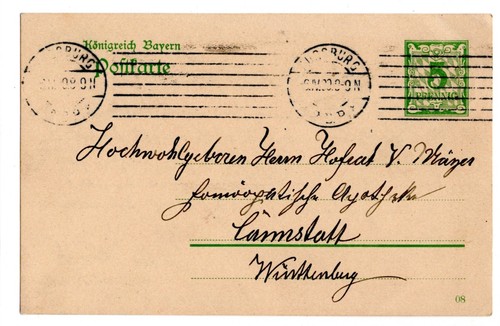 Königreich Bayern
Postkarte
5
PFENNIG
Hochwohlgeboren Herrn Hofrat V. Mayer
Homöopatische Apotheke
Cannstatt
Württemberg
08